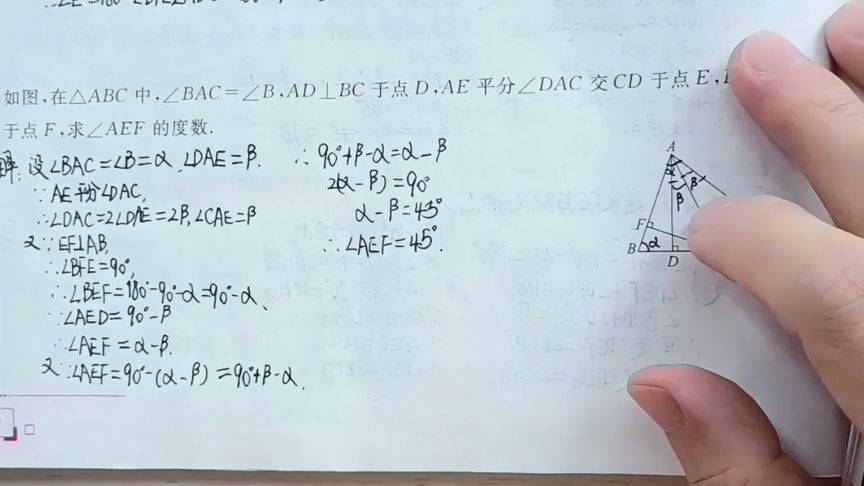 如图,在△ABC 中,∠BAC=∠B,AD⊥BC 于点 D,AE 平分∠DAC 交 CD 于点 E,
于点 F,求∠AEF 的度数.
解: 设∠BAC=∠B=α,∠DAE=β.
∵AE平分∠DAC,
∴∠DAC=2∠DAE=2β,∠CAE=β
又∵EF⊥AB,
∴∠BFE=90°,
∴∠BEF=180°-90°-α=90°-α、
∵∠AED=90°-β
∴∠AEF=α-β.
又∵∠AEF=90°-(α-β)=90°+β-α.
∴90°+β-α=α-β
2(α-β)=90°
α-β=45°
∴∠AEF=45°.
A
α
β
β
F
B
α
D